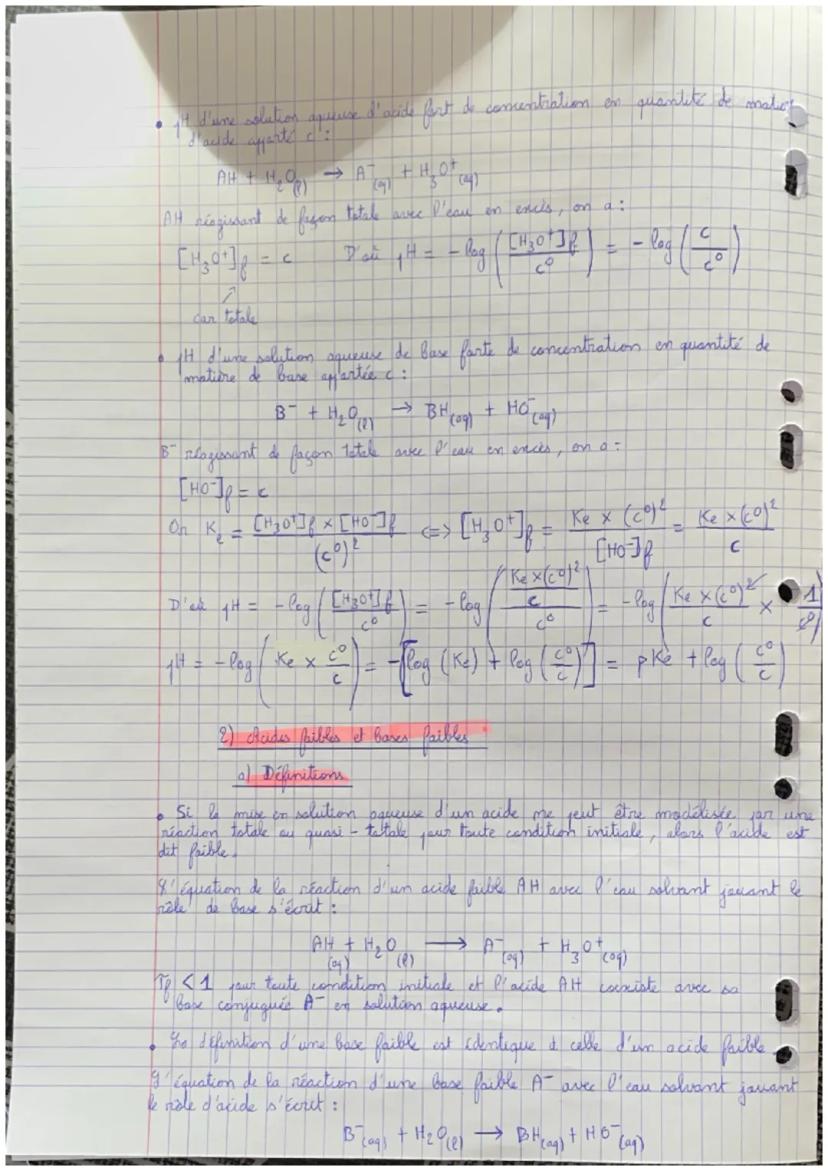 • pH d'une solution aqueuse d'acide fort de concentration en quantité de matière
d'acide apporté c :
AH + H₂O(l) → A⁻(aq) + H₃O⁺(aq)
AH réagissant de façon totale avec l'eau en excès, on a :
[H₃O⁺]f = c D'où pH = - log ([H₃O⁺]f / c⁰) = - log (c / c⁰)
car totale
• pH d'une solution aqueuse de base forte de concentration en quantité de
matière de base apportée c :
B⁻ + H₂O(l) → BH(aq) + HO⁻(aq)
B⁻ réagissant de façon totale avec l'eau en excès, on a :
[HO⁻]f = c
On Ke = [H₃O⁺]f × [HO⁻]f / (c⁰)² <=> [H₃O⁺]f = Ke × (c⁰)² / [HO⁻]f = Ke × (c⁰)² / c
D'où pH = - log ([H₃O⁺]f / c⁰) = - log ((Ke × (c⁰)² / c) / c⁰) = - log (Ke × (c⁰)² / c × 1 / c⁰)
pH = - log (Ke × c⁰ / c) = - [log (Ke) + log (c⁰ / c)] = pKe + log (c⁰ / c)
2) Acides faibles et bases faibles
a) Définitions
• Si la mise en solution aqueuse d'un acide ne peut être modélisée par une
réaction totale ou quasi-totale pour toute condition initiale, alors l'acide est
dit faible.
L'équation de la réaction d'un acide faible AH avec l'eau solvant jouant le
rôle de base s'écrit :
AH(aq) + H₂O(l) → A⁻(aq) + H₃O⁺(aq)
τf < 1 pour toute condition initiale et l'acide AH coexiste avec sa
base conjuguée A⁻ en solution aqueuse.
• La définition d'une base faible est identique à celle d'un acide faible.
L'équation de la réaction d'une base faible A⁻ avec l'eau solvant jouant
le rôle d'acide s'écrit :
B⁻(aq) + H₂O(l) → BH(aq) + HO⁻(aq)